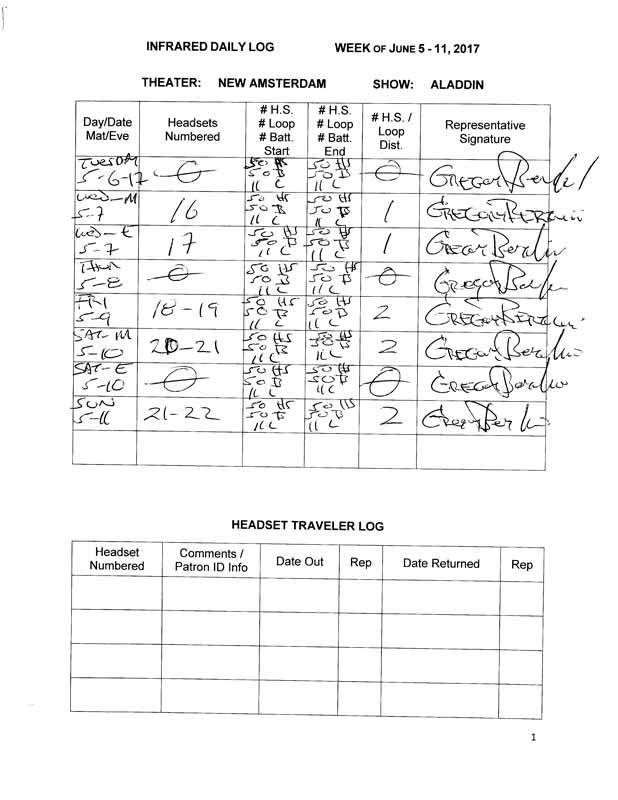 INFRARED DAILY LOG WEEK OF JUNE 5 - 11, 2017
THEATER: NEW AMSTERDAM SHOW: ALADDIN
Day/Date Mat/Eve Headsets Numbered # H.S. # Loop # Batt. Start # H.S. # Loop # Batt. End # H.S. / Loop Dist. Representative Signature
TUESDAY 5-6-17 0 50 HS 50 B 11 C 50 HS 50 B 11 C 0 GREGORY
WED-M 5-7 16 50 HS 50 B 11 C 50 HS 50 B 11 C 1 GREGORY
WED-E 5-7 17 50 HS 50 B 11 C 50 HS 50 B 11 C 1 GREGORY
THUR 5-8 0 50 HS 50 B 11 C 50 HS 50 B 11 C 0 GREGORY
FRI 5-9 18-19 50 HS 50 B 11 C 50 HS 50 B 11 C 2 GREGORY
SAT-M 5-10 20-21 50 HS 50 B 11 C 50 B 11 C 2 GREGORY
SAT-E 5-10 0 50 HS 50 B 11 C 50 HS 50 B 11 C 0 GREGORY
SUN 5-11 21-22 50 HS 50 B 11 C 50 HS 50 B 11 C 2 Gregory
HEADSET TRAVELER LOG
Headset Numbered Comments / Patron ID Info Date Out Rep Date Returned Rep
1